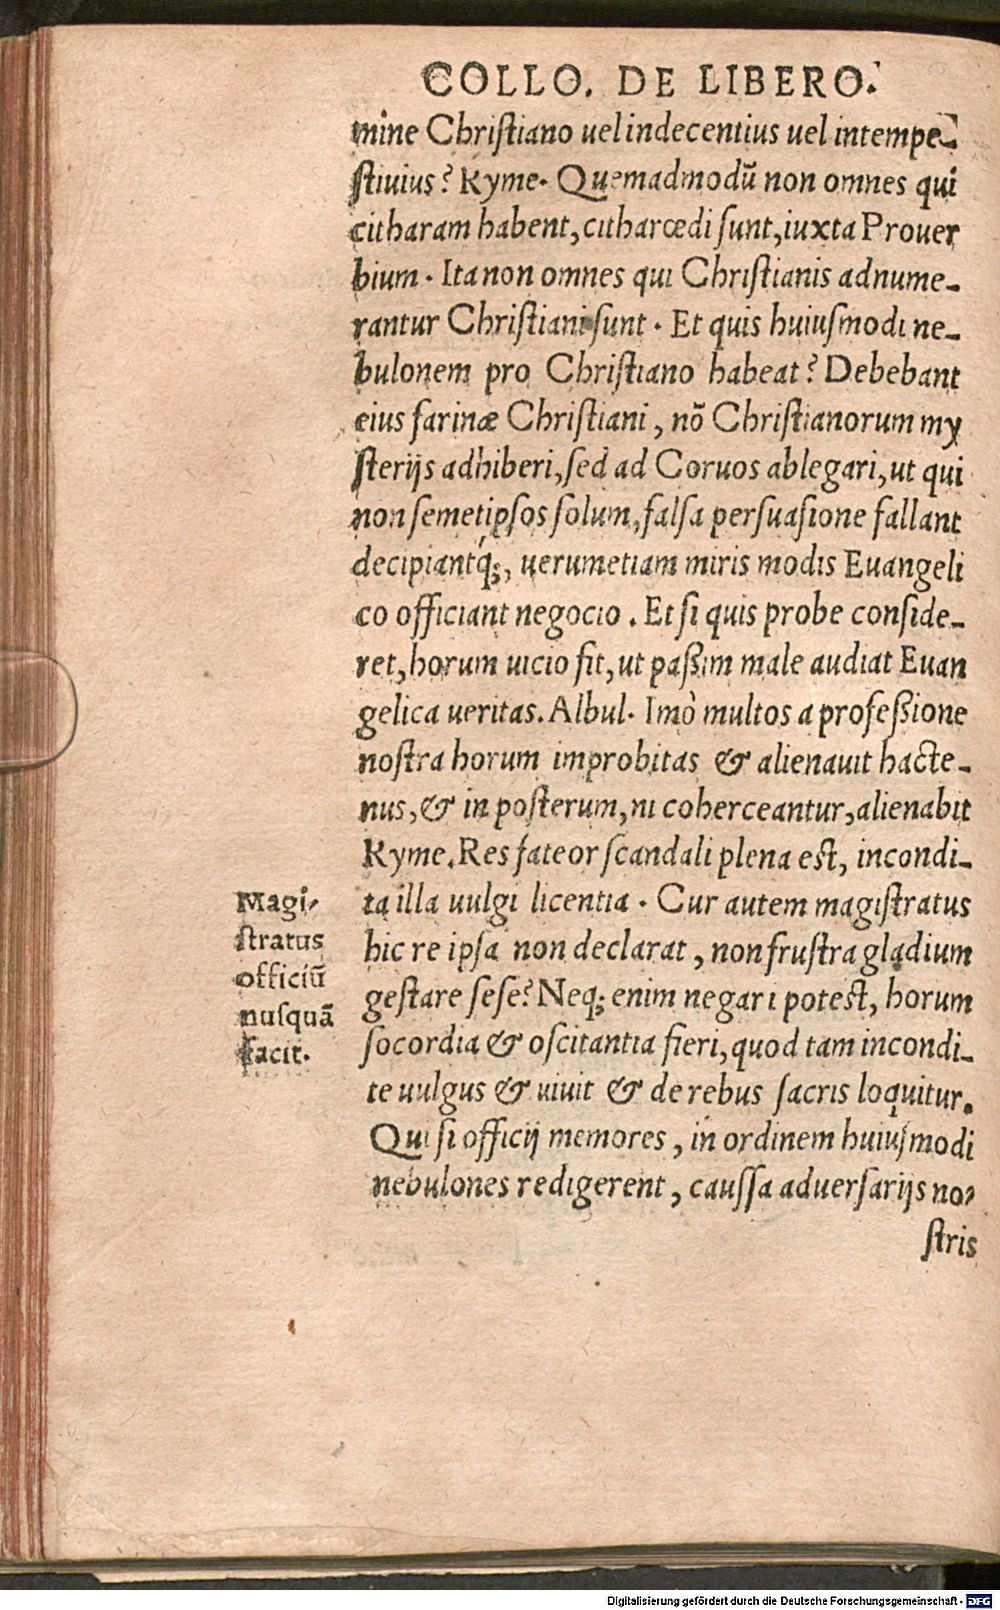 COLLO. DE LIBERO.
mine Chriſtiano uel indecentius uel intempe-
ſtiuius? Kyme. Quemadmodū non omnes qui
citharam habent, citharœdi ſunt, iuxta Prouer
bium. Ita non omnes qui Chriſtianis adnume-
rantur Chriſtiani ſunt. Et quis huiuſmodi ne-
bulonem pro Chriſtiano habeat? Debebant
eius farinæ Chriſtiani, nō Chriſtianorum my
ſterijs adhiberi, ſed ad Coruos ablegari, ut qui
non ſemetipſos ſolum, falſa perſuaſione fallant
decipiantq́;, uerumetiam miris modis Euangeli
co officiant negocio. Et ſi quis probe conſide-
ret, horum uicio fit, ut paßim male audiat Euan
gelica ueritas. Albul. Imò multos a profeßione
noſtra horum improbitas & alienauit hacte-
nus, & in poſterum, ni coherceantur, alienabit
Kyme. Res fateor ſcandali plena eſt, incondi-
ta illa uulgi licentia. Cur autem magiſtratus
hic re ipſa non declarat, non fruſtra gladium
geſtare ſeſe? Neq; enim negari poteſt, horum
ſocordia & oſcitantia fieri, quod tam incondi-
te uulgus & uiuit & de rebus ſacris loquitur.
Qui ſi officij memores, in ordinem huiuſmodi
nebulones redigerent, cauſſa aduerſarijs no-
ſtris
Magi-
ſtratus
officiū
nuſquā
facit.
Digitalisierung gefördert durch die Deutsche Forschungsgemeinschaft - DFG